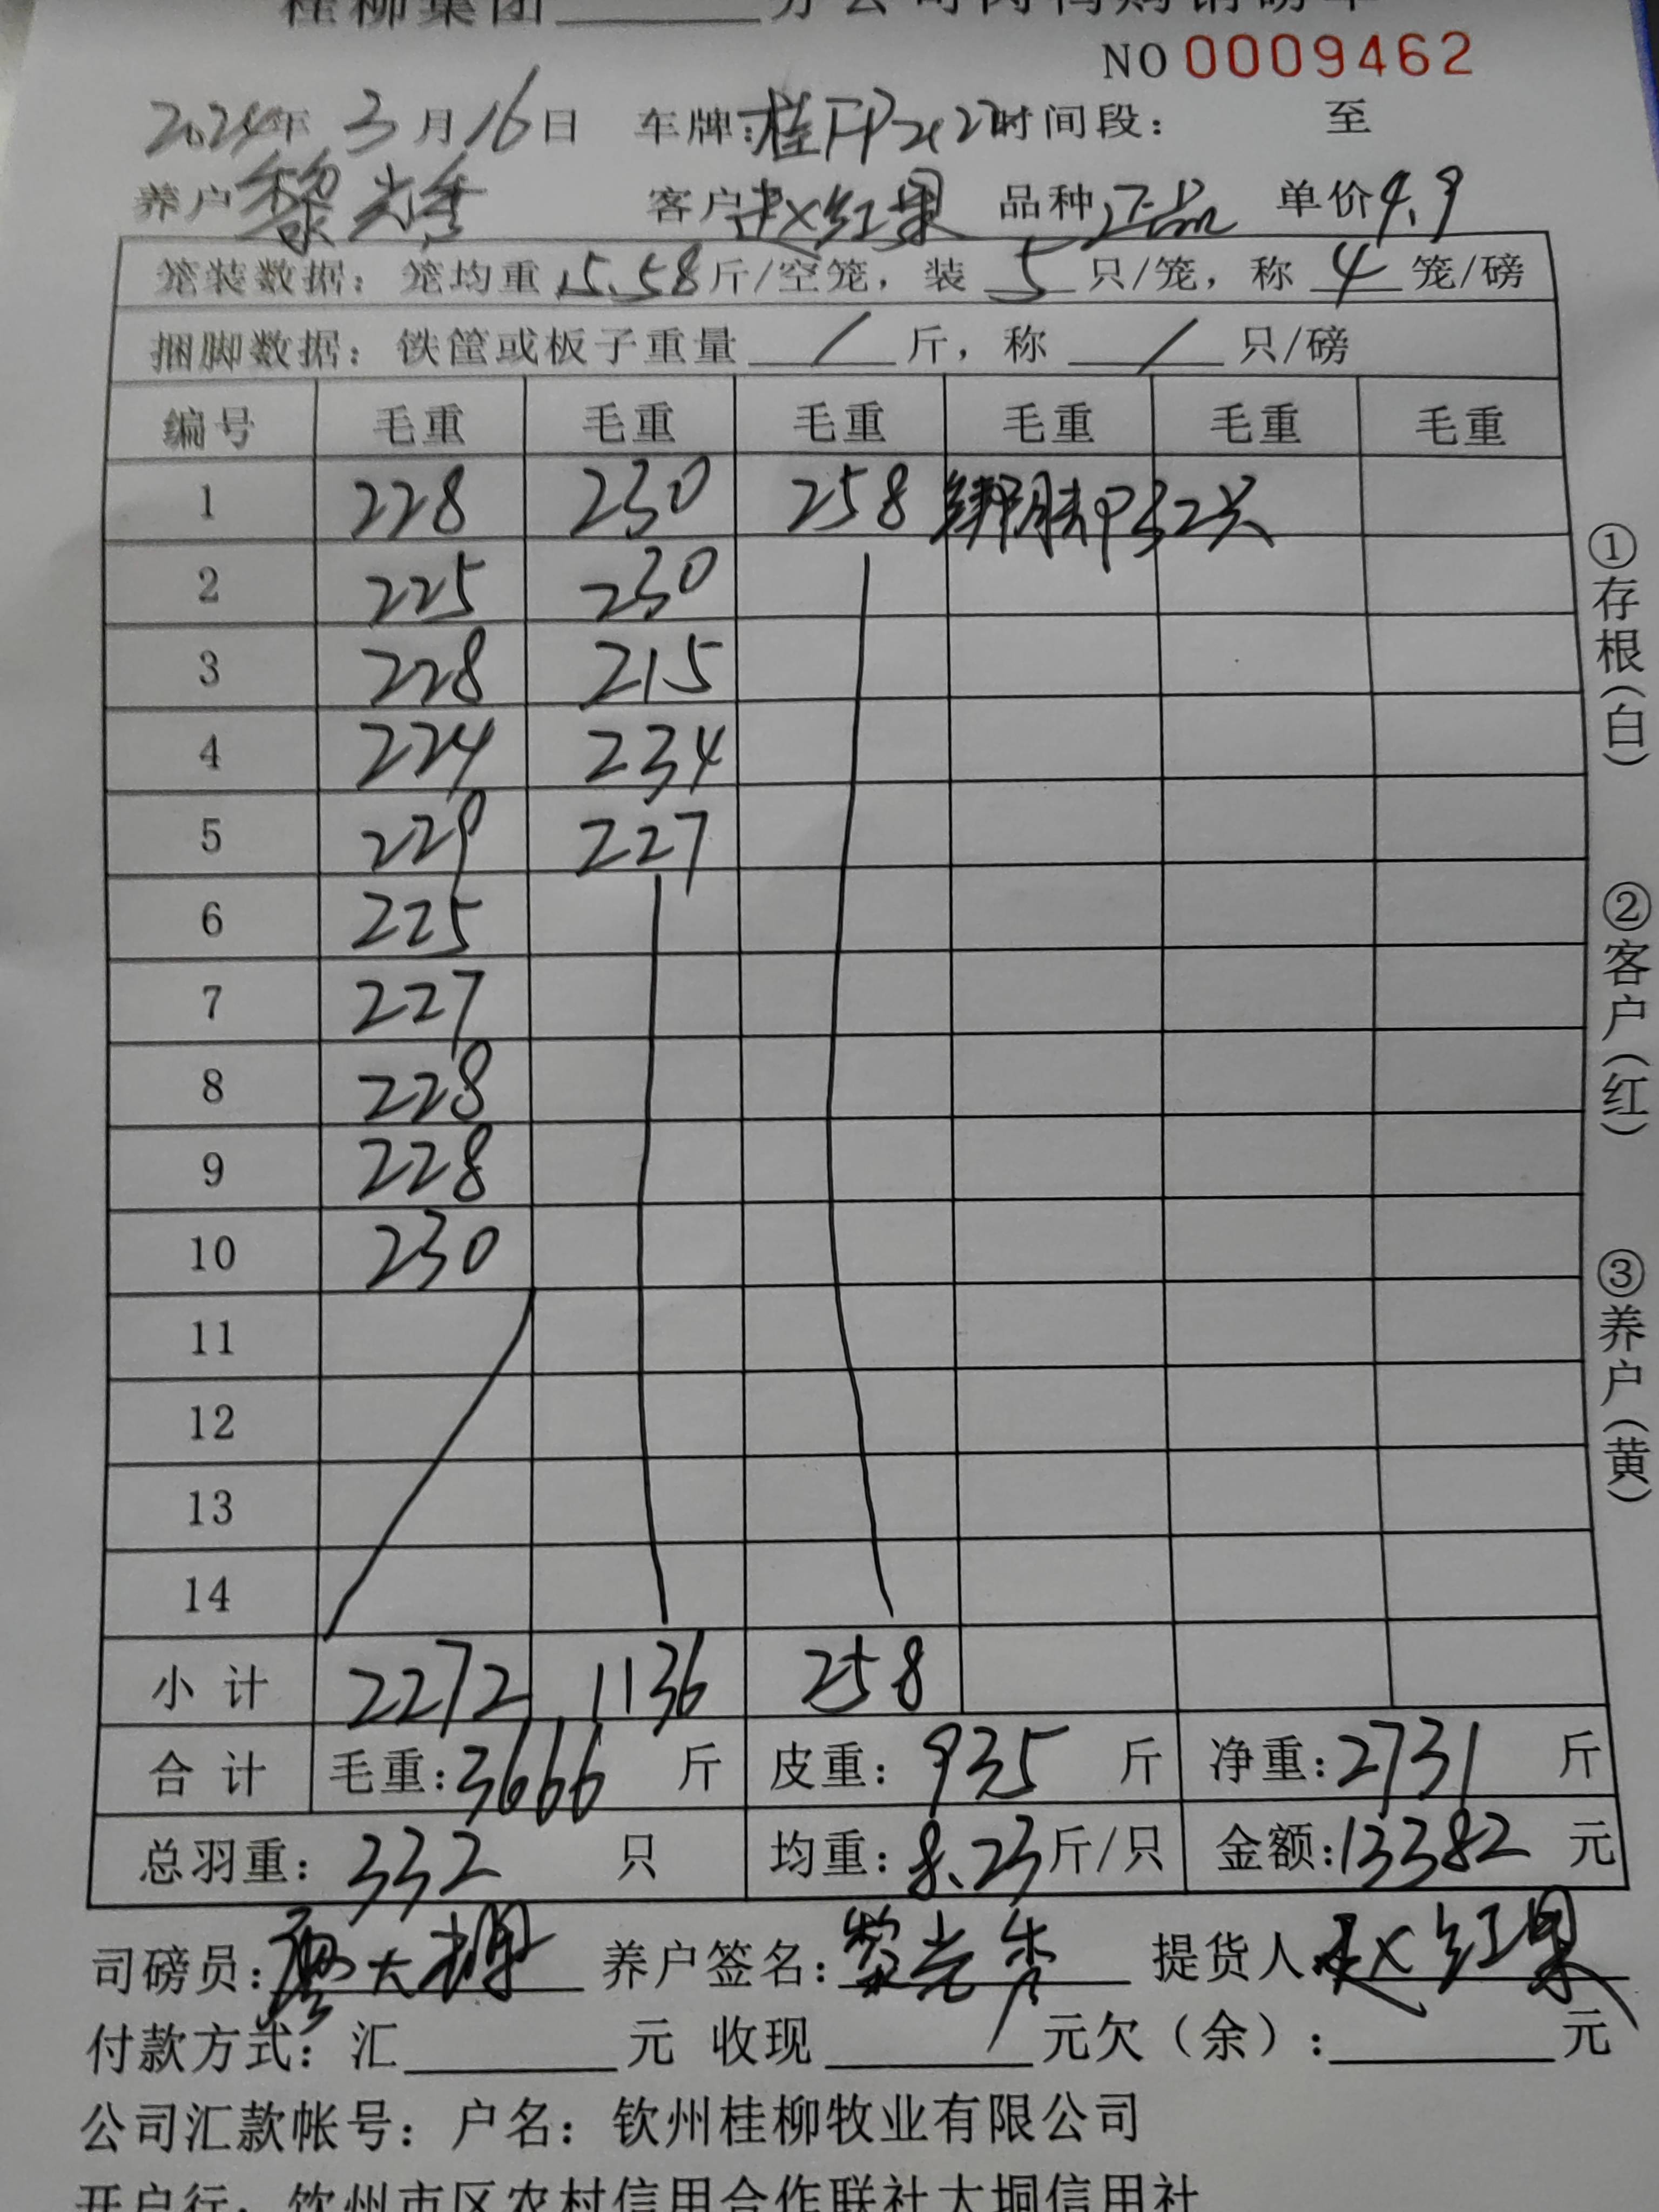 桂柳集团______分公司肉鸭购销磅单
NO 0009462
2024年 3月16日 车牌: 时间段: 至
养户 黎光 客户 赵红果 品种 正品 单价 4.9
笼装数据: 笼均重 15.58 斤/空笼, 装 5 只/笼, 称 4 笼/磅
捆脚数据: 铁筐或板子重量 / 斤, 称 / 只/磅
编号 毛重 毛重 毛重 毛重 毛重 毛重
1 228 230 258 绑脚 32只
2 225 230
3 228 215
4 224 234
5 229 227
6 225
7 227
8 228
9 228
10 230
11
12
13
14
小计 2272 1136 258
合计 毛重:3666 斤 皮重: 935 斤 净重:2731 斤
总羽重: 332 只 均重:8.23斤/只 金额:13382 元
司磅员: 养户签名:黎光 提货人 赵红果
付款方式: 汇______元 收现______元欠(余):______元
公司汇款帐号: 户名: 钦州桂柳牧业有限公司
开户行: 钦州市区农村信用合作联社大垌信用社
①存根(白)
②客户(红)
③养户(黄)